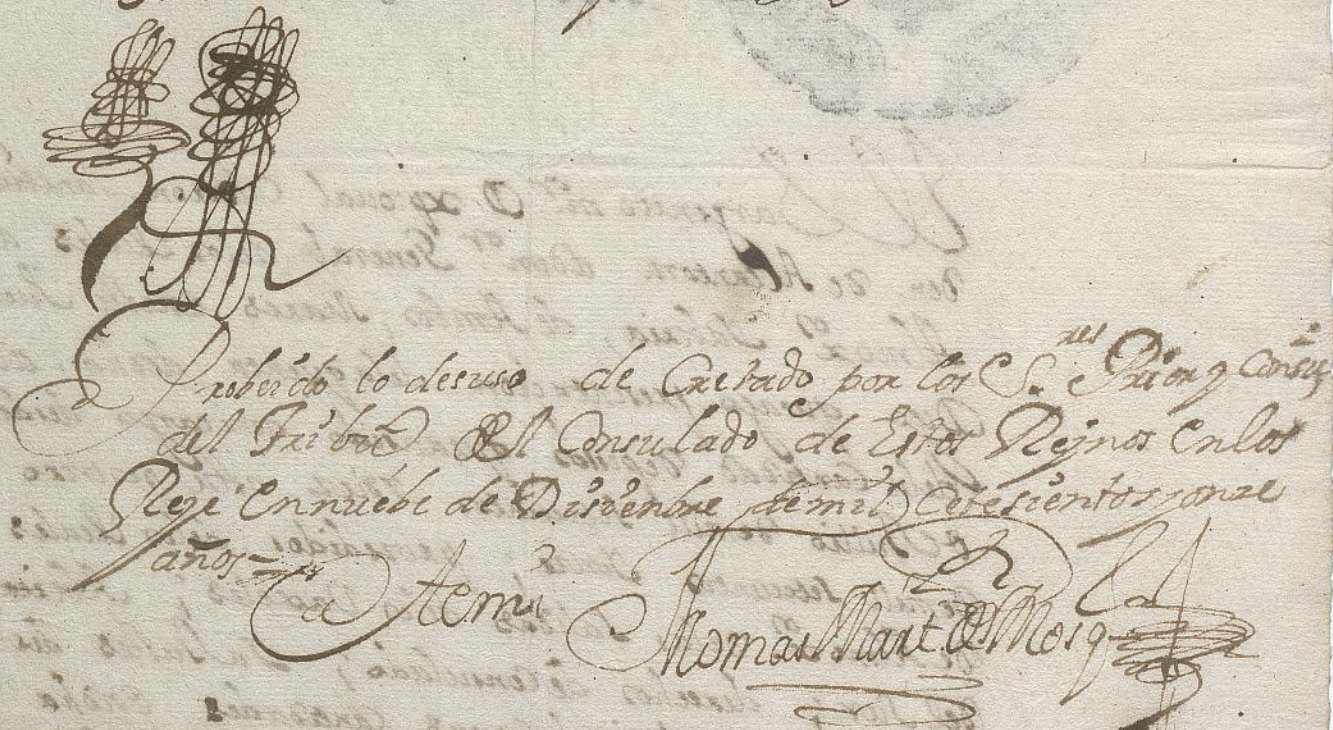 Probeido lo desuso de Cretado por los S.res Prior y Consu
del Tribu Del Consulado de Estos Reynos en los
Reye en nuebe de Disienbre de mil Cetesientos y onze
años
Ante mi
Thomas Mart. de Mosq